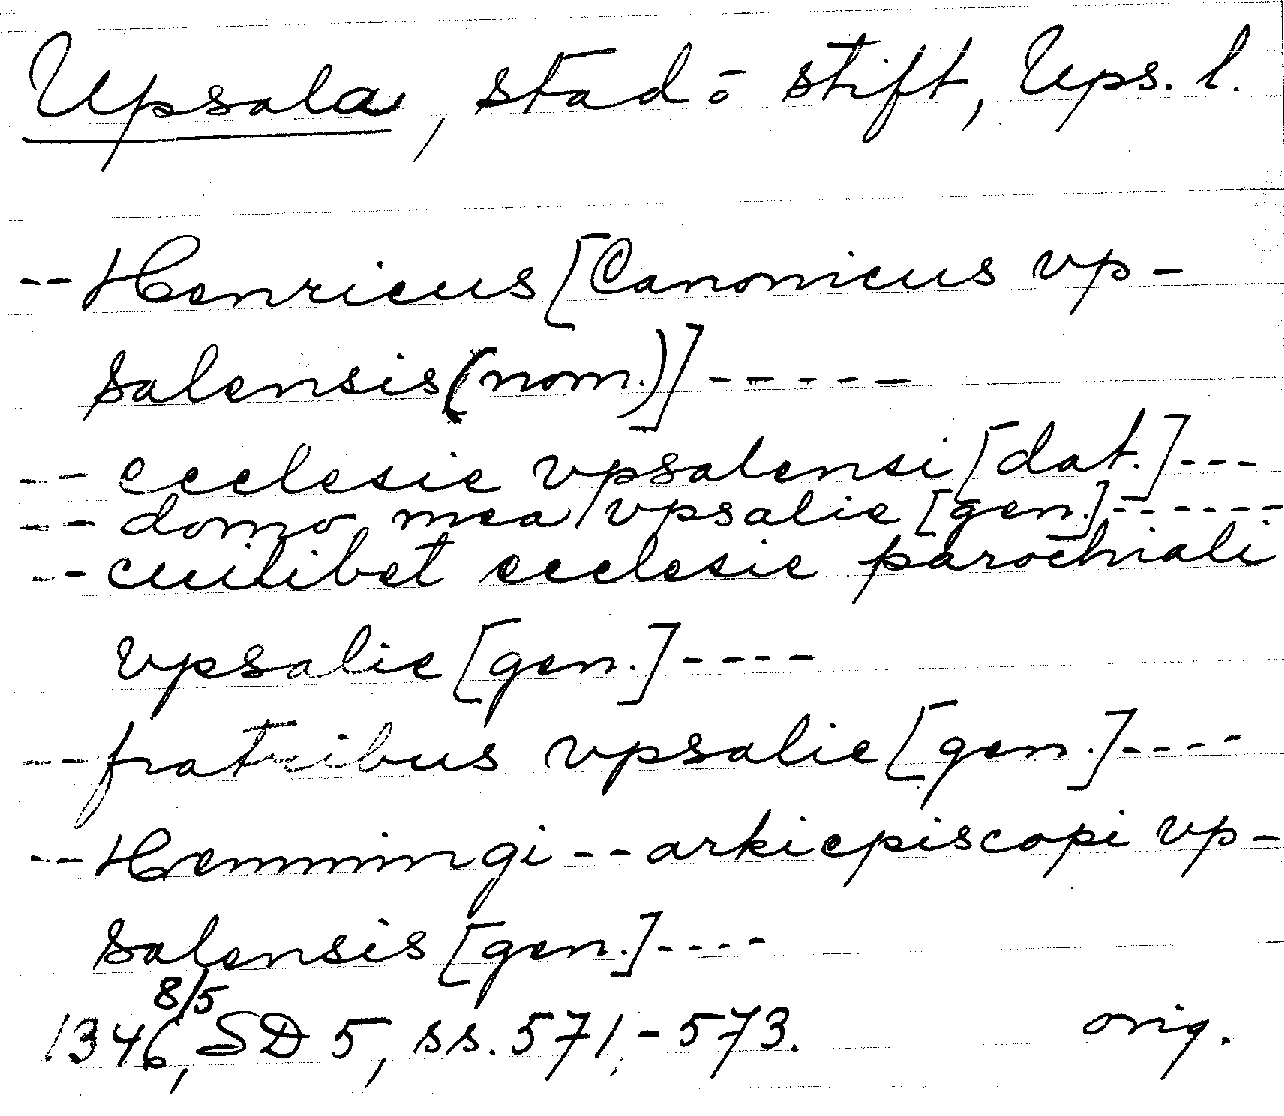 Upsala, stad o stift, Ups. l.
-- Henricus [Canonicus vp-
salensis (nom.)] -----
-- ecclesie vpsalensi [dat.] ---
-- domo mea vpsalie [gen.] ------
-- cuilibet ecclesie parochiali
vpsalie [gen.] ----
-- fratribus vpsalie [gen.] ----
-- Hemmingi -- arkiepiscopi vp-
salensis [gen.] ----
1346 8/5, SD 5, ss. 571-573. orig.